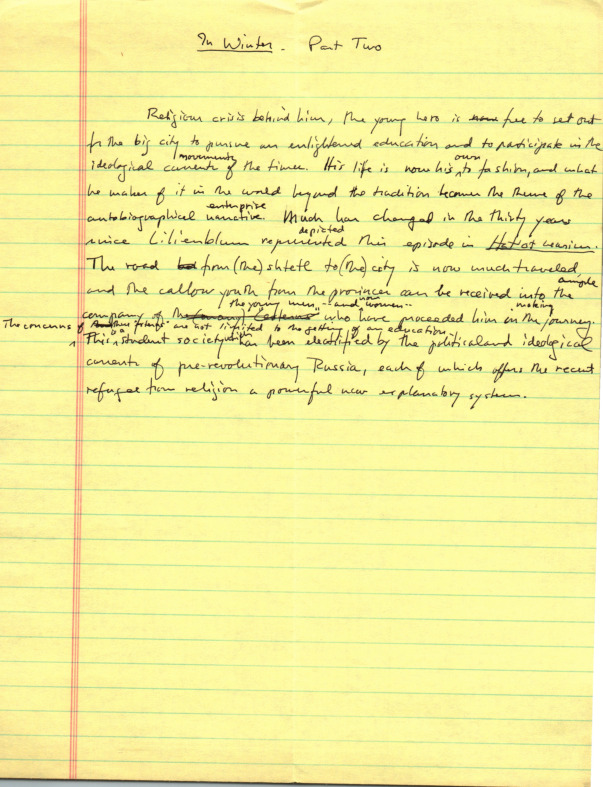 In Winter. Part Two
Religious crisis behind him, the young hero is now free to set out
for the big city to pursue an enlightened education and to participate in the
movements
ideological currents of the times. His life is now his own to fashion, and what
he makes of it in the world beyond the tradition becomes the theme of the
enterprise
autobiographical narrative. Much has changed in the thirty years
depicted
since Lilienblum represented this episode in Hat'ot neurim.
The road from (the) shtetl to (the) city is now much traveled,
and the callow youth from the provinces can be received into the ample
the young men -- and now women --
company of the who have proceeded him in making the journey.
The concerns of are not limited to the getting of an education
This student society has been electrified by the political and ideological
currents of pre-revolutionary Russia, each of which offers the recent
refugee from religion a powerful new explanatory system.